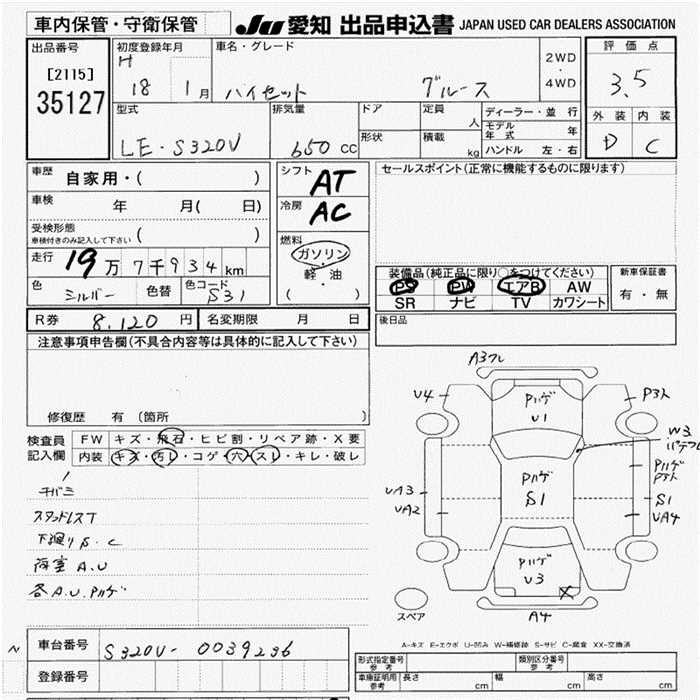 車内保管・守衛保管
JU 愛知 出品申込書 JAPAN USED CAR DEALERS ASSOCIATION
出品番号 初度登録年月 車名・グレード 2WD 4WD 評価点
[2115]
35127
H 18 1月 ハイゼット クルーズ 3.5
型式 排気量 ドア 定員 人 ディーラー・並行 外装 内装
形状 積載 kg モデル年式 年
ハンドル 左・右
LE-S320V 650cc D C
車歴 自家用・( ) シフト AT セールスポイント(正常に機能するものに限ります)
車検 年 月( 日) 冷房 AC
受検形態 ( )
車検付きのみ記入して下さい
燃料 ガソリン・軽油 ( )
走行 19万7千934km
装備品(純正品に限り○をつけてください) 新車保証書
PS PW エアB AW 有・無
SR ナビ TV カワシート
色 シルバー 色替 色コード S31
後日品
R券 8,120円 名変期限 月 日
注意事項申告欄(不具合内容等は具体的に記入して下さい)
修復歴 有 (箇所
検査員記入欄 FW キズ・飛石・ヒビ割・リペア跡・X要
内装 キズ・汚レ・コゲ・穴・スレ・キレ・破レ
スタッドレスT
下廻りS.C
荷室A.U
各A.U.Pハゲ
A3フレ
U4
Pハゲ
U1
Pスト
W3
Pハゲ
S1
Pハゲ
Pスト
UA3
UA2
S1
UA4
Pハゲ
U3
X
A4
スペア
A-キズ E-エクボ U-凹み W-補修跡 S-サビ C-腐食 XX-交換済
車台番号 S320V-0039236
登録番号
形式指定番号 参考 類別区分番号 参考
車庫証明用 参考 長さ cm 幅 cm 高さ cm